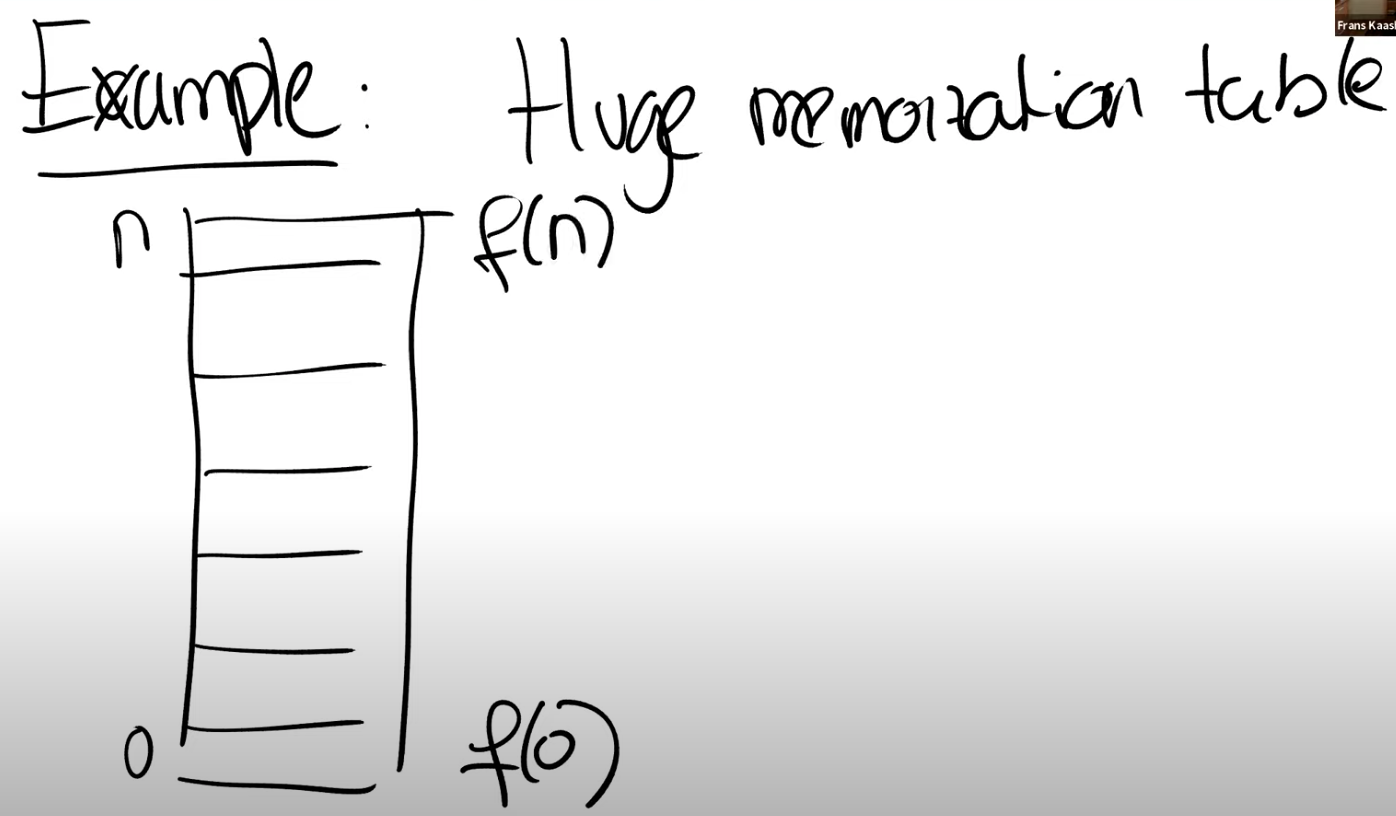 Frans Kaas
Example: Huge memoization table
n f(n)
0 f(0)